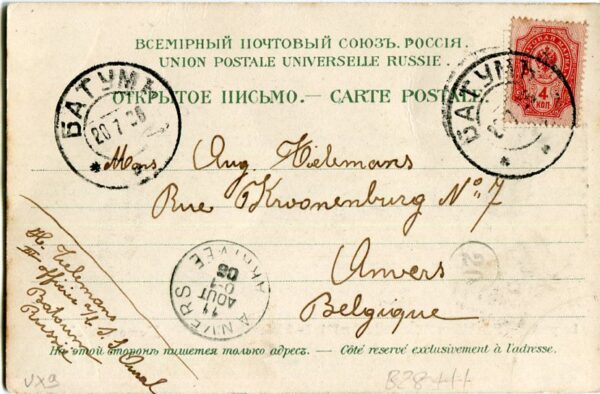 ВСЕМІРНЫЙ ПОЧТОВЫЙ СОЮЗЪ. РОССІЯ.
UNION POSTALE UNIVERSELLE RUSSIE.
ОТКРЫТОЕ ПИСЬМО. — CARTE POSTALE
4
КОП
БАТУМА
20 7 06
БАТУМА
Mons Aug. Tielemans
Rue Kroonenburg No 7
Anvers
Belgique
ANVERS
11
AOUT
06
ARRIVÉE
Tielemans
officier a/b S.S. Oural
Batoum
Russie
На этой сторонѣ пишется только адресъ. — Côté reservé exclusivement à l'adresse.
VX9
828